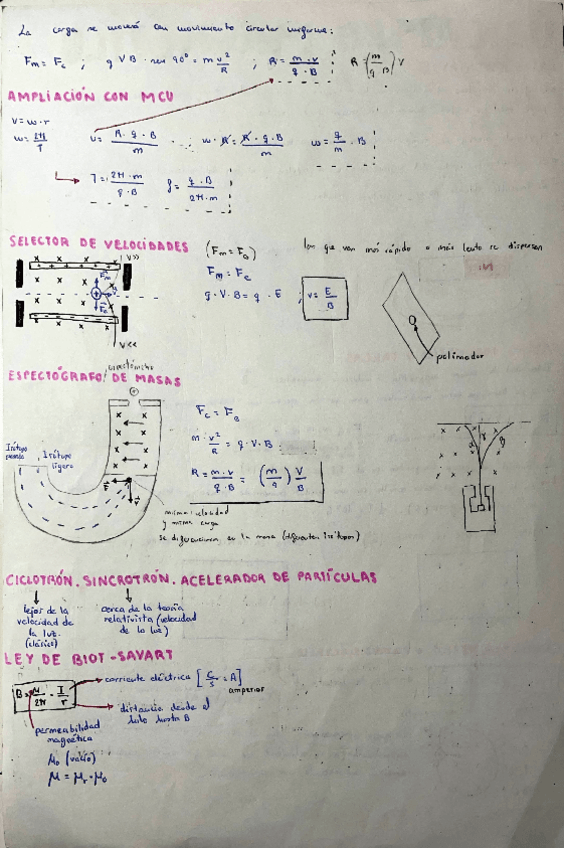 La carga se moverá con movimiento circular uniforme:
Fm = Fc ; q V B · sen 90° = m v²/R ; R = m · v / q · B   R = (m / q B) v
AMPLIACIÓN CON MCU
V = w · r
w = 2π/T   v = R · q · B / m   w · R = R · q · B / m   w = q/m · B
T = 2π · m / q · B   f = q · B / 2π · m
SELECTOR DE VELOCIDADES (Fm = Fe) los que van más rápido o más lento se dispersan
V>>
Fm
Fm = Fe
q · V · B = q · E ; v = E/B
Fe
V<<
palimador
ESPECTÓGRAFO DE MASAS
Fc = FB
m · v²/R = q · V · B
Isótopo pesado
Isótopo ligero
R = m · v / q · B = (m/q) V/B
F
V
misma velocidad
y misma carga
se diferencian en la masa (diferentes isótopos)
CICLOTRÓN. SINCROTRÓN. ACELERADOR DE PARTÍCULAS
lejos de la velocidad de la luz. (clásico)
cerca de la teoría relativista (velocidad de la luz)
LEY DE BIOT-SAVART
B = μ/2π · I/r
corriente eléctrica [C/s = A] amperios
distancia desde el hilo hasta B
permeabilidad magnética
μ₀ (vacío)
μ = μr · μ₀